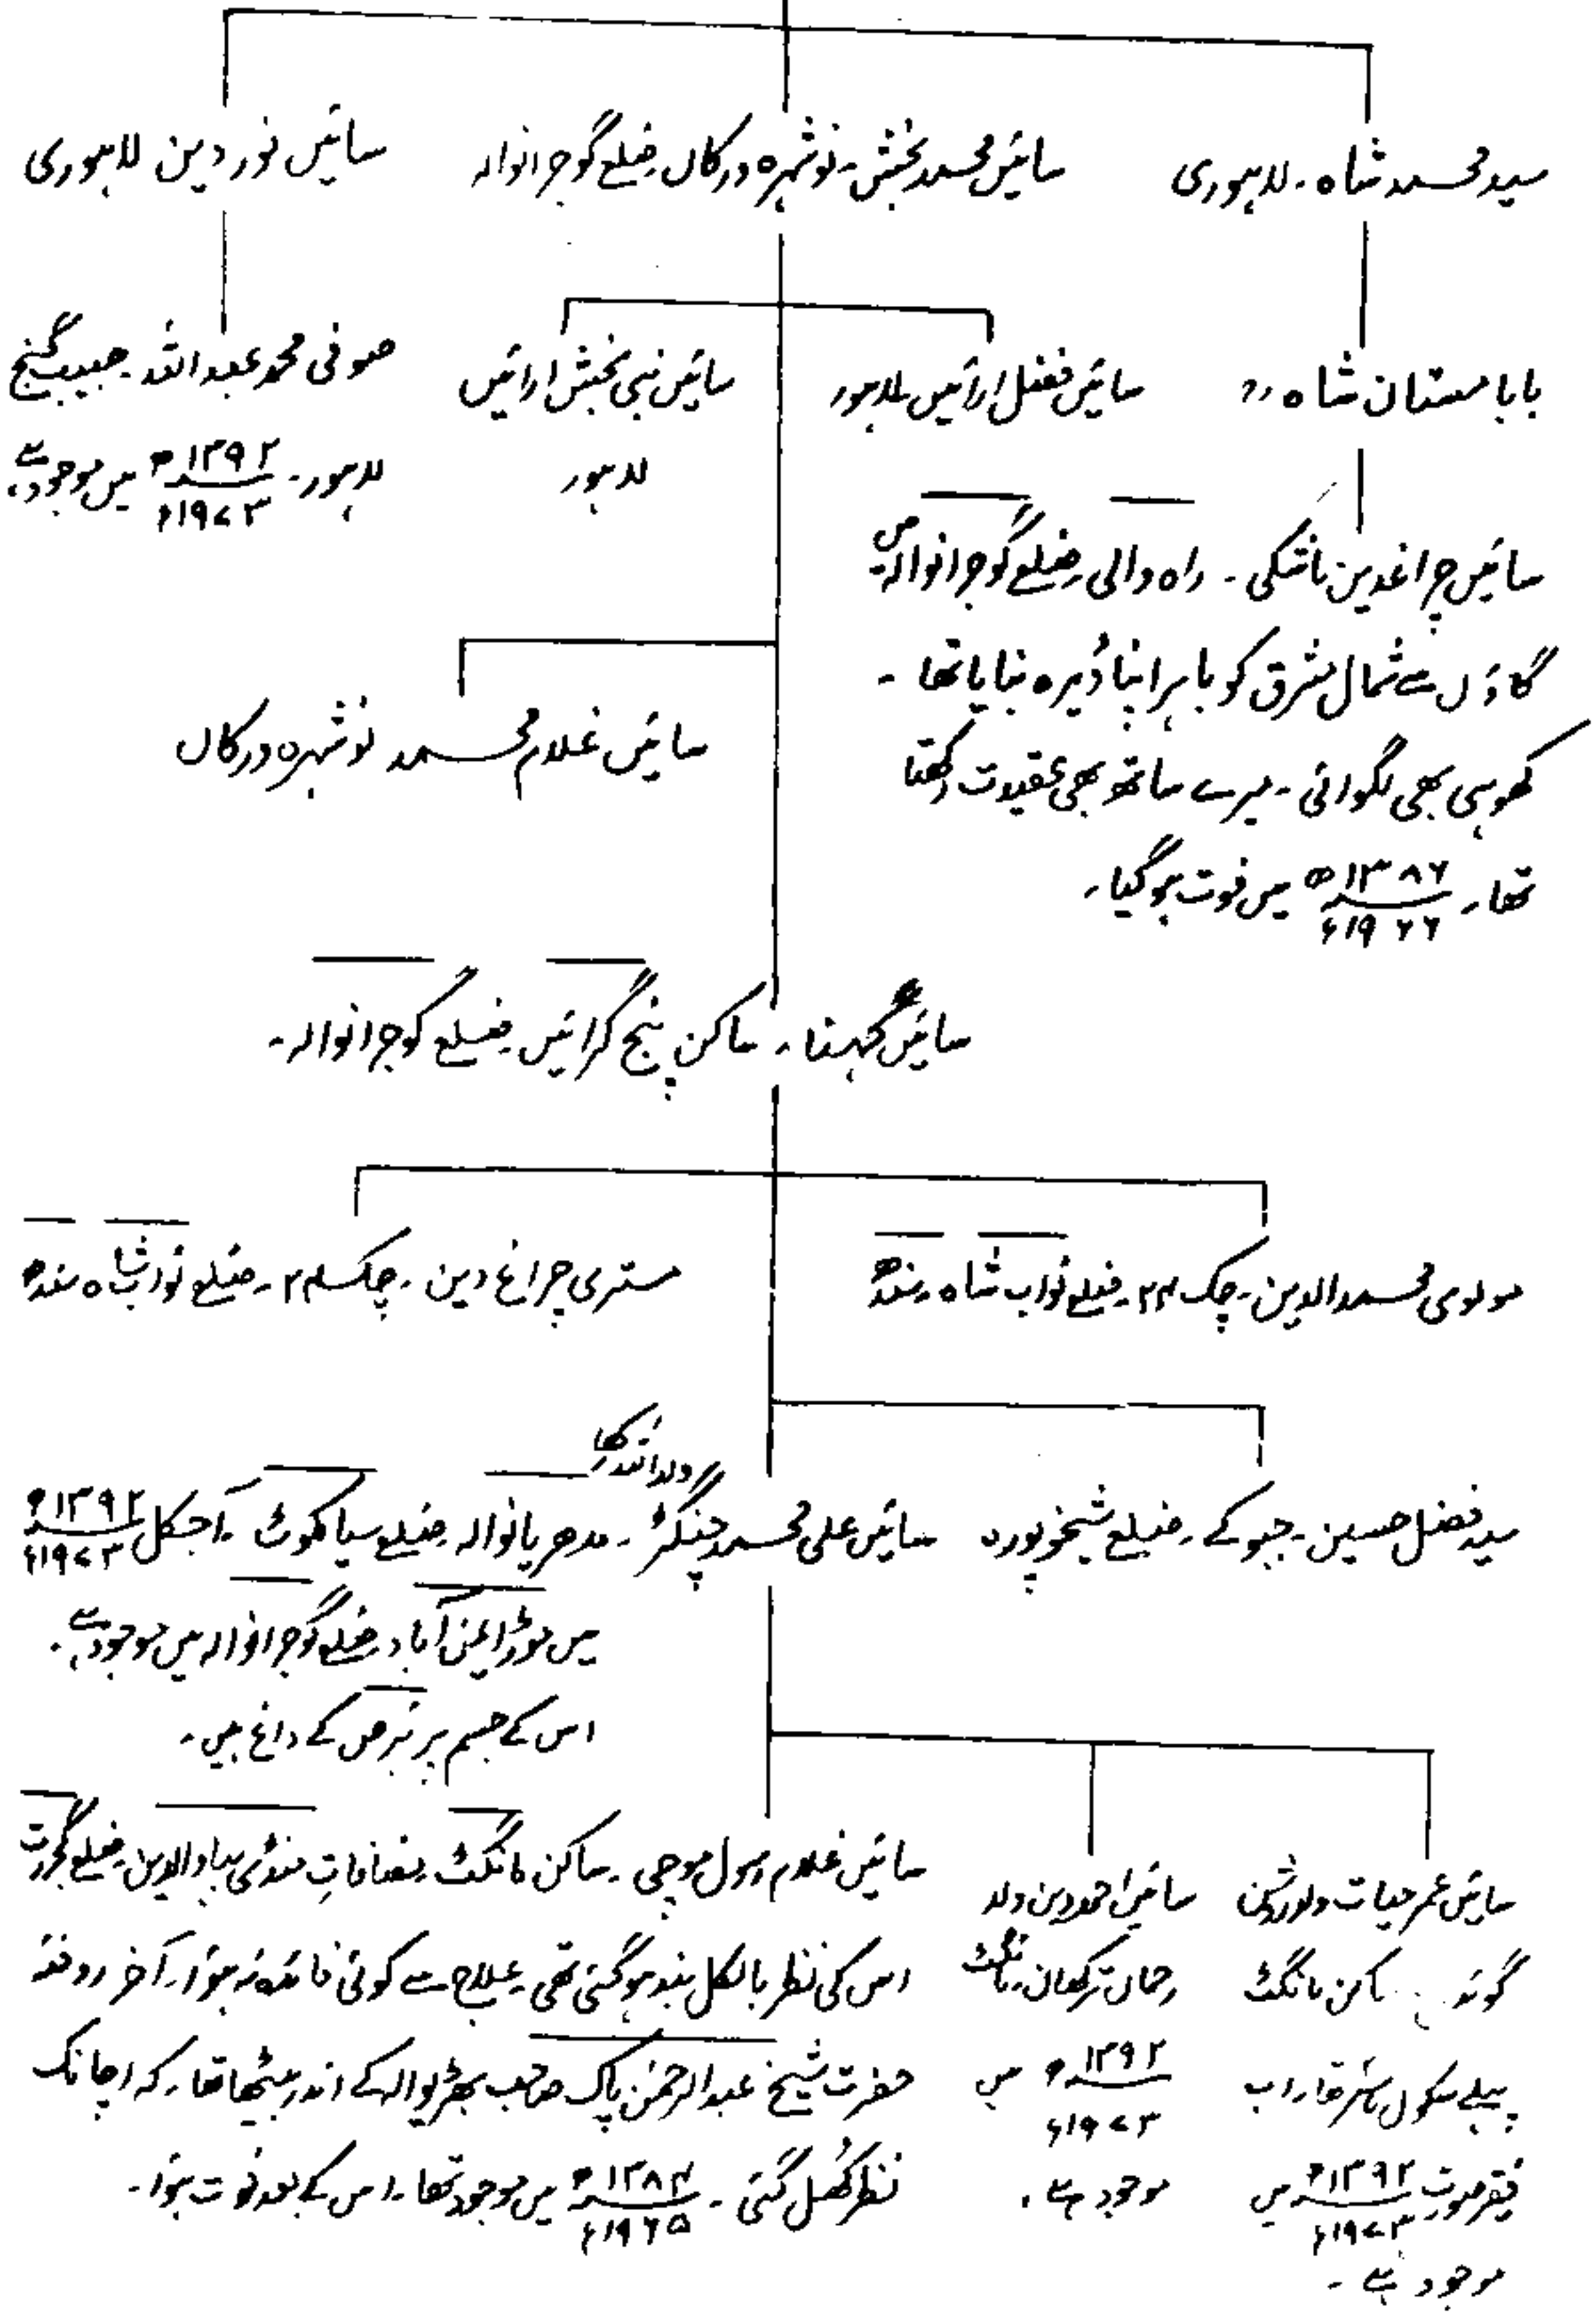 سید محمد شاہ۔ لاہوری
سائیں محمد بخش۔ نوشہرہ ورکاں ضلع گوجرانوالہ
سائیں نور دین لاہوری
بابا مستان شاہ ״
سائیں فضل ارائیں لاہور
سائیں نبی بخش ارائیں
لاہور
صوفی محمد عبداللہ۔ حبیب گنج
لاہور۔ ۱۳۹۲ھ / ۱۹۷۲ء میں موجود ہے
سائیں چراغدین ماشکی۔ راہ والی ضلع گوجرانوالہ میں
گاؤں سے شمال مشرق کو باہر اپنا ڈیرہ بنایا تھا۔
کھوہی بھی لگوائی۔ میرے ساتھ بھی عقیدت رکھتا
تھا۔ ۱۳۸۶ھ / ۱۹۶۶ء میں فوت ہوگیا۔
سائیں غلام محمد نوشہرہ ورکاں
سائیں گہنا۔ ساکن پنج گرائیں۔ ضلع گوجرانوالہ۔
مولوی محمد الدین۔ چک ضلع نواب شاہ۔ سندھ
مستری چراغ دین۔ چک ضلع نواب شاہ سندھ
سید فضل حسین۔ ضلع شیخوپورہ
سائیں علی محمد ولد اللہ رکھا ضلع سیالکوٹ۔ آجکل ۱۳۹۲ھ / ۱۹۷۲ء
میں موڑ ایمن آباد ضلع گوجرانوالہ میں موجود ہے۔
اس کے جسم پر برص کے داغ ہیں۔
سائیں عمر حیات ولد روشن
گوندل ساکن مانگٹ
پہلے سکول ماسٹر تھا۔ اب
فقیر صورت ۱۳۹۲ھ / ۱۹۷۲ء میں
موجود ہے۔
سائیں احمد دین ولد
رحماں ترکھان۔ مانگٹ
۱۳۹۲ھ / ۱۹۷۲ء میں
موجود ہے۔
سائیں غلام رسول موچی۔ ساکن مانگٹ مضافاتِ منڈی بہاؤالدین۔ ضلع گجرات
اس کی نظر بالکل بند ہوگئی تھی۔ علاج سے کوئی فائدہ نہ ہوا۔ آخر روضہ
حضرت شیخ عبدالرحمٰن پاک صاحب بھڑیوالہ کے اندر بیٹھا تھا۔ کہ اچانک
نظر کھُل گئی۔ ۱۳۸۴ھ / ۱۹۶۵ء میں موجود تھا۔ اس کے بعد فوت ہوا۔